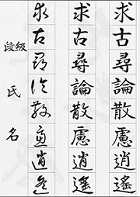 求古尋論散慮逍遙
求古尋論散慮逍遙
求古尋論散慮逍遙
段級
氏名